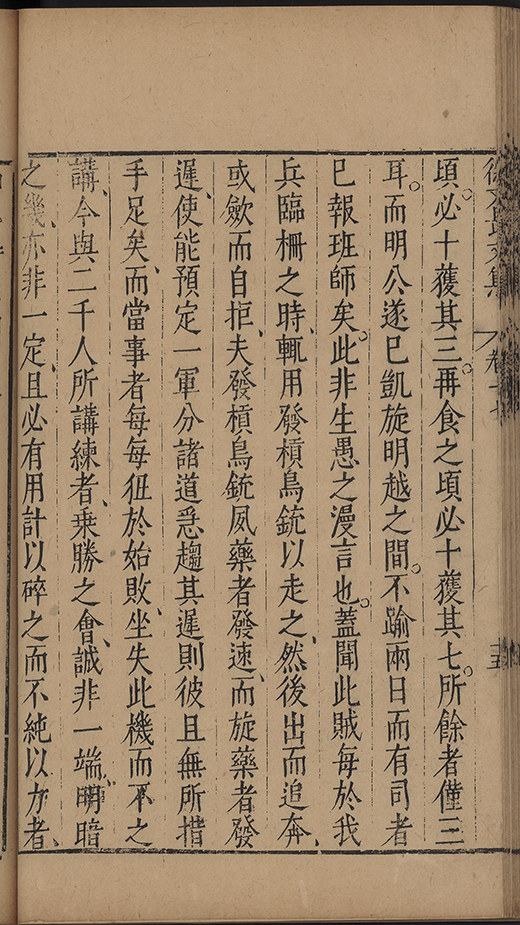 徐文長文集 卷十七 十五
頃。必十獲其三。再食之頃必十獲其七。所餘者僅三
耳。而明公遂已凱旋明越之間。不踰兩日而有司者
已報班師矣。此非生愚之漫言也。蓋聞此賊每於我
兵臨柵之時、輒用發槓鳥銃以走之、然後出而追奔、
或斂而自拒、夫發槓鳥銃夙藥者發速、而旋藥者發
遲、使能預定一軍分諸道急趨其遲則彼且無所措
手足矣、而當事者每每狃於始敗、坐失此機而不之
講、今與二千人所講練者、乘勝之會、誠非一端、明暗
之幾、亦非一定、且必有用計以碎之而不純以力者、